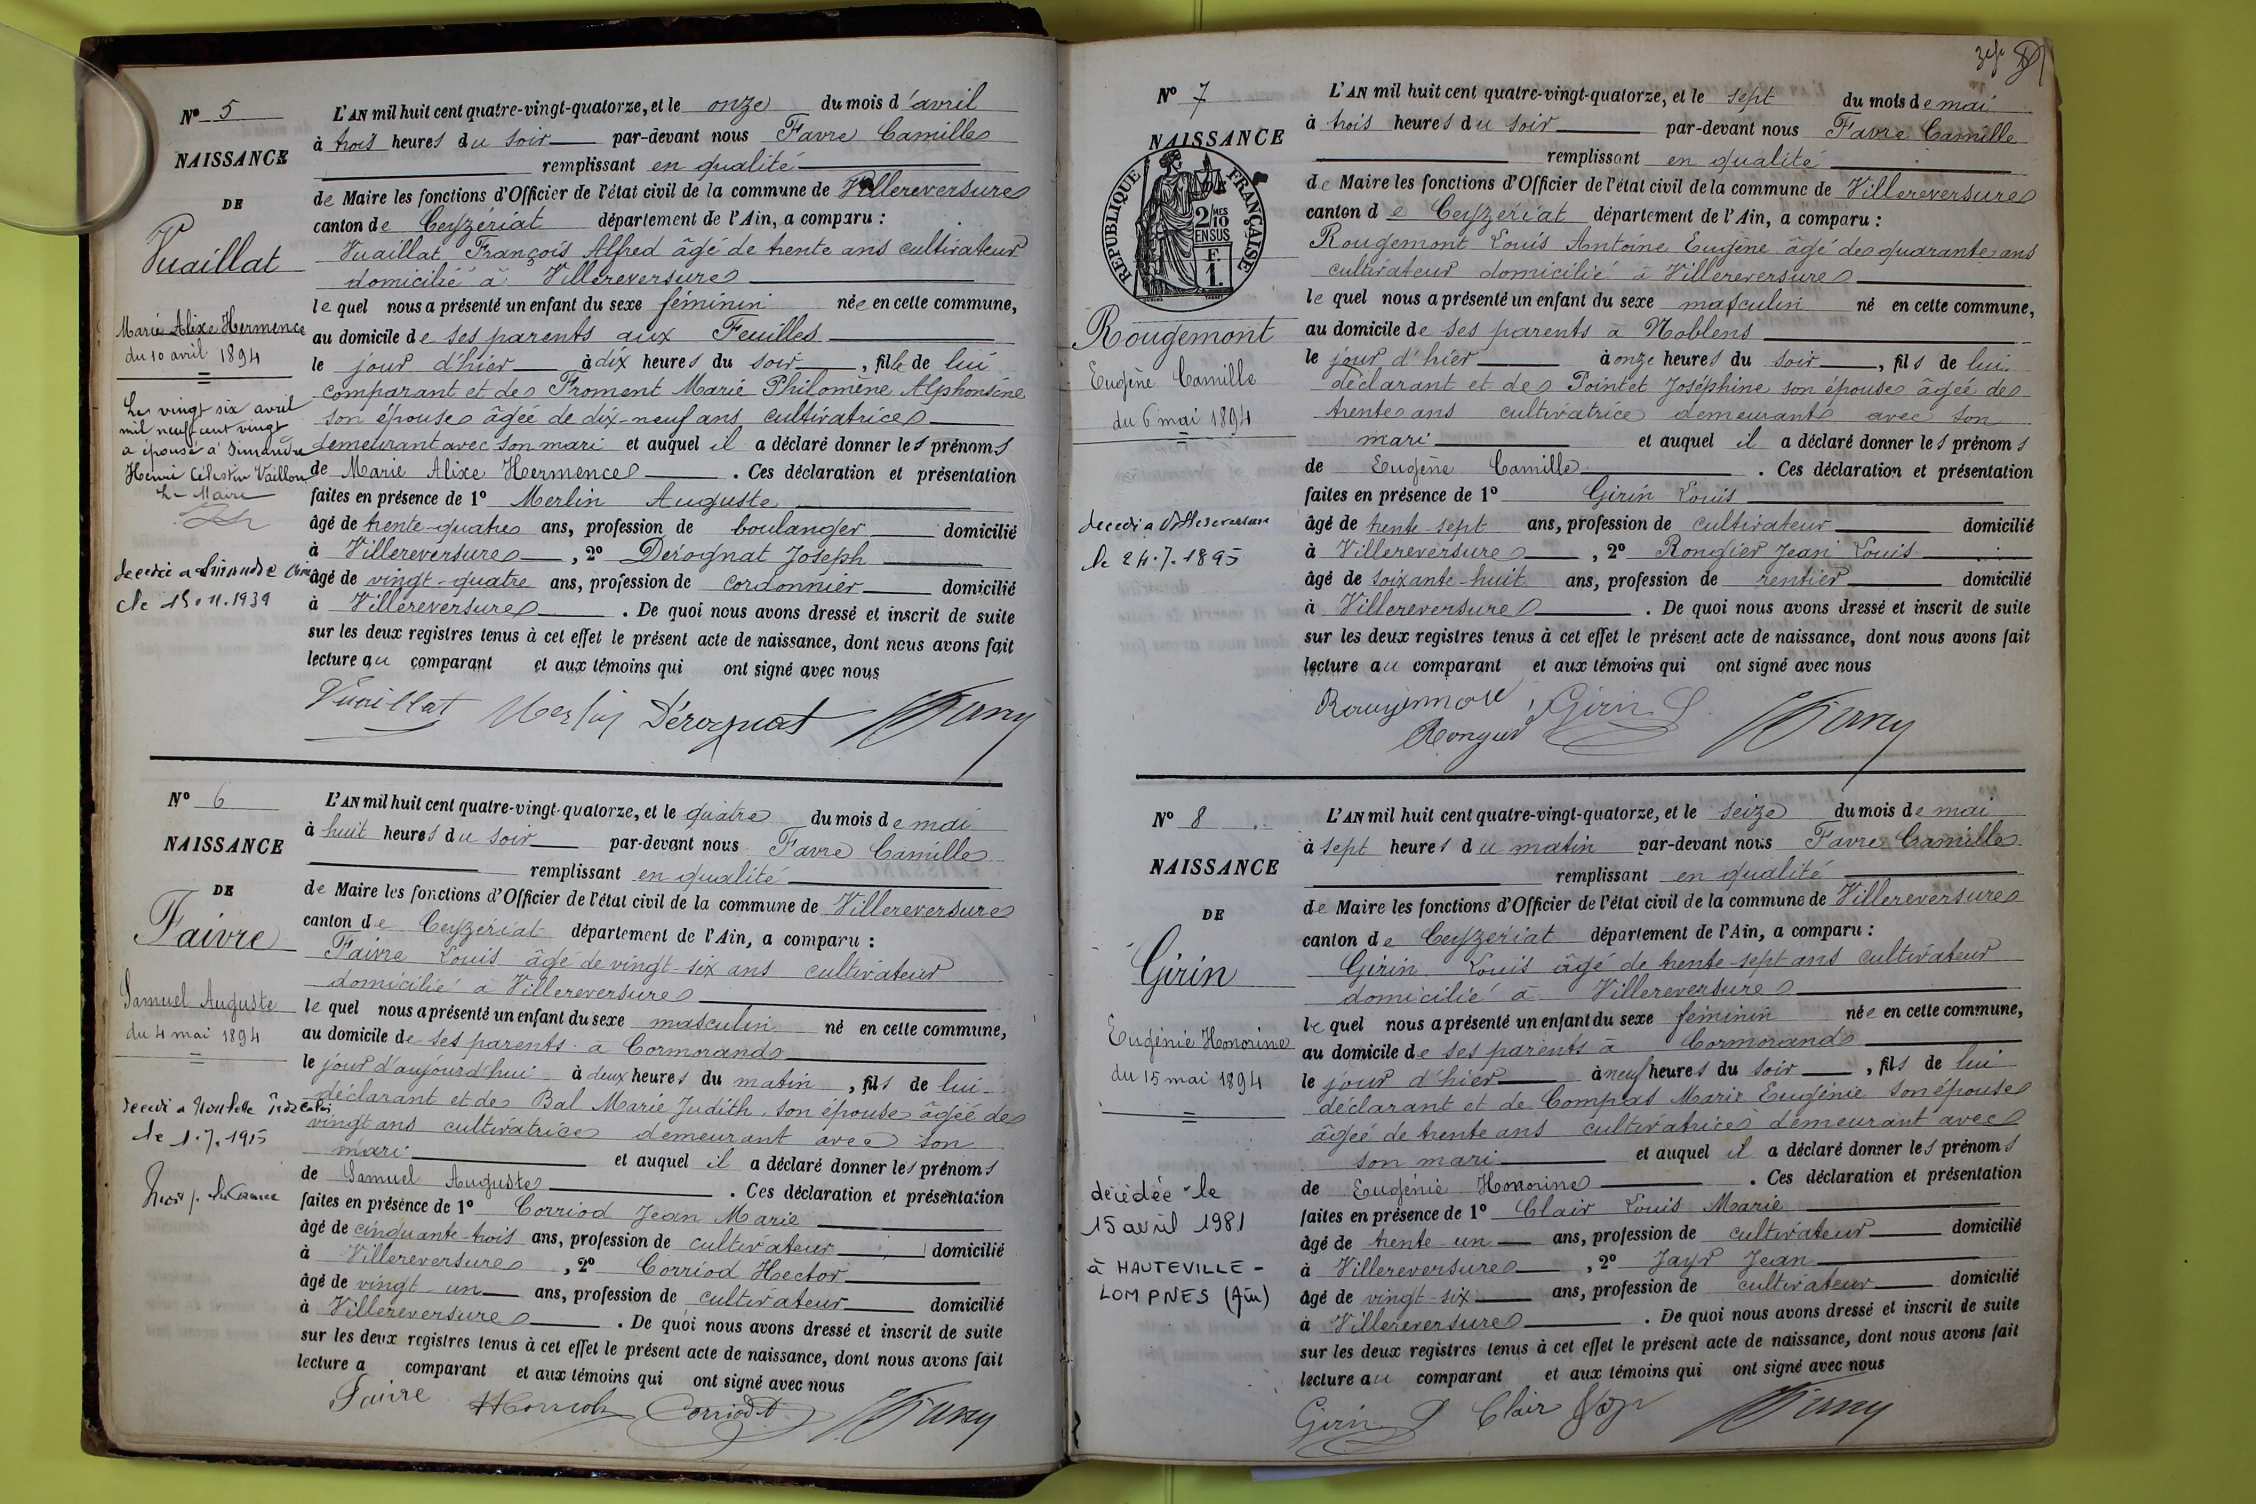 Nº 5
NAISSANCE
DE
Vuaillat
Marie Alixe Hermence
du 10 avril 1894
Le vingt six avril
mil neuf cent vingt
a épousé à Simandre
Henri Célestin Vaillon
Le Maire
décédée a Simandre
le 15.11.1939
L'AN mil huit cent quatre-vingt-quatorze, et le onze du mois d'avril
à trois heures du soir par-devant nous Favre Camille
remplissant en qualité
de Maire les fonctions d'Officier de l'état civil de la commune de Villereversure
canton de Ceyzériat département de l'Ain, a comparu :
Vuaillat François Alfred âgé de trente ans cultivateur
domicilié à Villereversure
lequel nous a présenté un enfant du sexe féminin née en cette commune,
au domicile de ses parents aux Feuilles
le jour d'hier à dix heures du soir, fille de lui
comparant et de Froment Marie Philomène Alphonsine
son épouse âgée de dix-neuf ans cultivatrice
demeurant avec son mari et auquel il a déclaré donner les prénoms
de Marie Alixe Hermence. Ces déclaration et présentation
faites en présence de 1º Merlin Auguste
âgé de trente-quatre ans, profession de boulanger domicilié
à Villereversure, 2º Dérognat Joseph
âgé de vingt-quatre ans, profession de cordonnier domicilié
à Villereversure. De quoi nous avons dressé et inscrit de suite
sur les deux registres tenus à cet effet le présent acte de naissance, dont nous avons fait
lecture au comparant et aux témoins qui ont signé avec nous
Vuaillat Merlin Dérognat
Nº 6
NAISSANCE
DE
Faivre
Samuel Auguste
du 4 mai 1894
le 1.7.1915
L'AN mil huit cent quatre-vingt-quatorze, et le quatre du mois de mai
à huit heures du soir par-devant nous Favre Camille
remplissant en qualité
de Maire les fonctions d'Officier de l'état civil de la commune de Villereversure
canton de Ceyzériat département de l'Ain, a comparu :
Faivre Louis âgé de vingt-six ans cultivateur
domicilié à Villereversure
lequel nous a présenté un enfant du sexe masculin né en cette commune,
au domicile de ses parents à Cormorand
le jour d'aujourd'hui à deux heures du matin, fils de lui
déclarant et de Bal Marie Judith son épouse âgée de
vingt ans cultivatrice demeurant avec son
mari et auquel il a déclaré donner les prénoms
de Samuel Auguste. Ces déclaration et présentation
faites en présence de 1º Corriod Jean Marie
âgé de cinquante-trois ans, profession de cultivateur domicilié
à Villereversure, 2º Corriod Hector
âgé de vingt un ans, profession de cultivateur domicilié
à Villereversure. De quoi nous avons dressé et inscrit de suite
sur les deux registres tenus à cet effet le présent acte de naissance, dont nous avons fait
lecture a comparant et aux témoins qui ont signé avec nous
Faivre
Nº 7
NAISSANCE
REPUBLIQUE FRANÇAISE
2/10 MES
EN SUS
F.
1.
Rougemont
Eugène Camille
du 6 mai 1894
décédé a Villereversure
le 24.7.1895
L'AN mil huit cent quatre-vingt-quatorze, et le sept du mois de mai
à trois heures du soir par-devant nous Favre Camille
remplissant en qualité
de Maire les fonctions d'Officier de l'état civil de la commune de Villereversure
canton de Ceyzériat département de l'Ain, a comparu :
Rougemont Louis Antoine Eugène âgé de quarante ans
cultivateur domicilié à Villereversure
lequel nous a présenté un enfant du sexe masculin né en cette commune,
au domicile de ses parents à Noblens
le jour d'hier à onze heures du soir, fils de lui
déclarant et de Pointet Joséphine son épouse âgée de
trente ans cultivatrice demeurant avec son
mari et auquel il a déclaré donner les prénoms
de Eugène Camille. Ces déclaration et présentation
faites en présence de 1º Girin Louis
âgé de trente-sept ans, profession de cultivateur domicilié
à Villereversure, 2º Rongier Jean Louis
âgé de soixante-huit ans, profession de rentier domicilié
à Villereversure. De quoi nous avons dressé et inscrit de suite
sur les deux registres tenus à cet effet le présent acte de naissance, dont nous avons fait
lecture au comparant et aux témoins qui ont signé avec nous
Rougemont Girin L
Rongier
Nº 8
NAISSANCE
DE
Girin
Eugénie Honorine
du 15 mai 1894
décédée le
15 avril 1981
à HAUTEVILLE-
LOMPNES (Ain)
L'AN mil huit cent quatre-vingt-quatorze, et le seize du mois de mai
à sept heures du matin par-devant nous Favre Camille
remplissant en qualité
de Maire les fonctions d'Officier de l'état civil de la commune de Villereversure
canton de Ceyzériat département de l'Ain, a comparu :
Girin Louis âgé de trente-sept ans cultivateur
domicilié à Villereversure
lequel nous a présenté un enfant du sexe féminin née en cette commune,
au domicile de ses parents à Cormorand
le jour d'hier à neuf heures du soir, fils de lui
déclarant et de Compas Marie Eugénie son épouse
âgée de trente ans cultivatrice demeurant avec
son mari et auquel il a déclaré donner les prénoms
de Eugénie Honorine. Ces déclaration et présentation
faites en présence de 1º Clair Louis Marie
âgé de trente un ans, profession de cultivateur domicilié
à Villereversure, 2º Jayr Jean
âgé de vingt-six ans, profession de cultivateur domicilié
à Villereversure. De quoi nous avons dressé et inscrit de suite
sur les deux registres tenus à cet effet le présent acte de naissance, dont nous avons fait
lecture au comparant et aux témoins qui ont signé avec nous
Girin L Clair Jayr